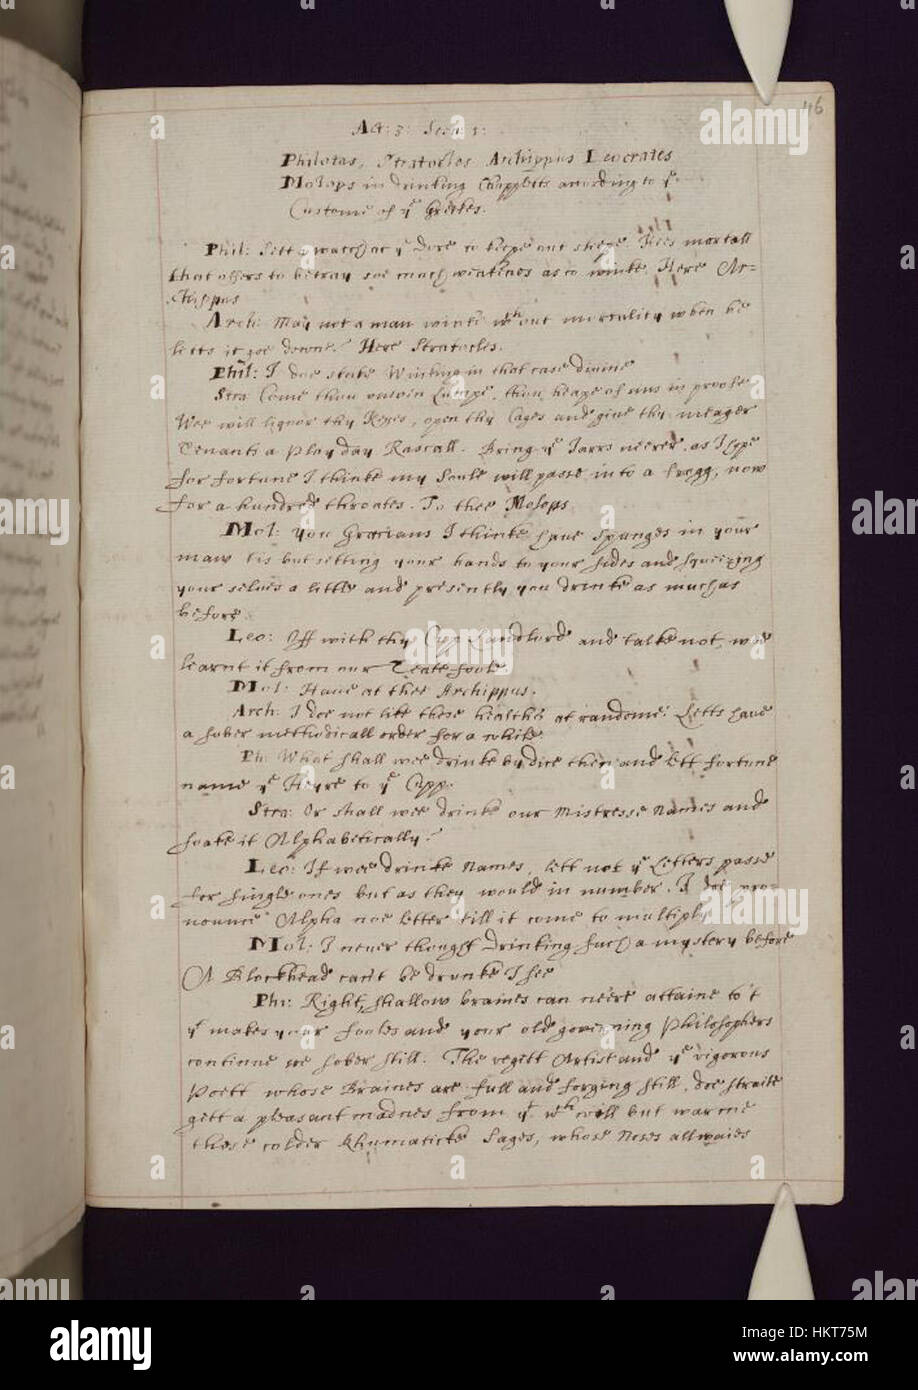 46
Act: 3: Scen: 1:
Philotas, Stratocles Archippus Leocrates
Molops in drinking Chappletts according to yͤ
Custome of yͤ Greekes.
Phil: Sett a watch at yͤ dore to keepe out sleepe. Tees mortall
that offers to betray soe much weaknes as to winke. Here Ar-
chippus
Arch: May not a man winke wͭʰout mortality when he
letts it goe downe? Here Stratocles.
Phil: I doe state Winking in that case divine
Stra: Come thou unwin thou heape of uns in proofe
Wee will liquor thy Keyes, open thy Cages and give thy meager
Tenants a Play day Rascall. Bring yͤ Jarrs neerer, as I hope
for fortune I thinke my Soule will passe into a frogg, now
for a hundred throates. To thee Molops
Mol: you Grecians I thinke have Spunges in your
maw tis but setting your hands to your sides and squeezing
your selves a little and presently you drinke as much as
before
Leo: Off with thy Cupp Landlord and talke not, wee
learnt it from our fooles.
Mol: Have at thee Archippus.
Arch: I doe not like these healths at randome: Letts have
a sober methodicall order for a while
Ph: What shall wee drinke by dice then and lett fortune
name yͤ Heyre to yͤ Cupp.
Stra: Or shall wee drinke our Mistresse Names and
soake it Alphabetically?
Leo: If wee drinke Names, lett not yͤ Letters passe
for single ones but as they would in number. I doe pro-
nounce Alpha noe letter till it come to multiply
Mol: I never thought Drinking such a mystery before
A Blockhead can't be drunke I see
Phi: Right, shallow braines can neere attaine to't
yͭ makes your fooles and your old governing Philosophers
continue soe sober still. The Artist and yͤ vigorous
Poett whose Braines are full and forging still, doe straite
gett a pleasant madnes from yͭ wͨʰ will but warme
these colder Rhumaticke Sages, whose Noses allwaies
alamy
Image ID: HKT75M
www.alamy.com